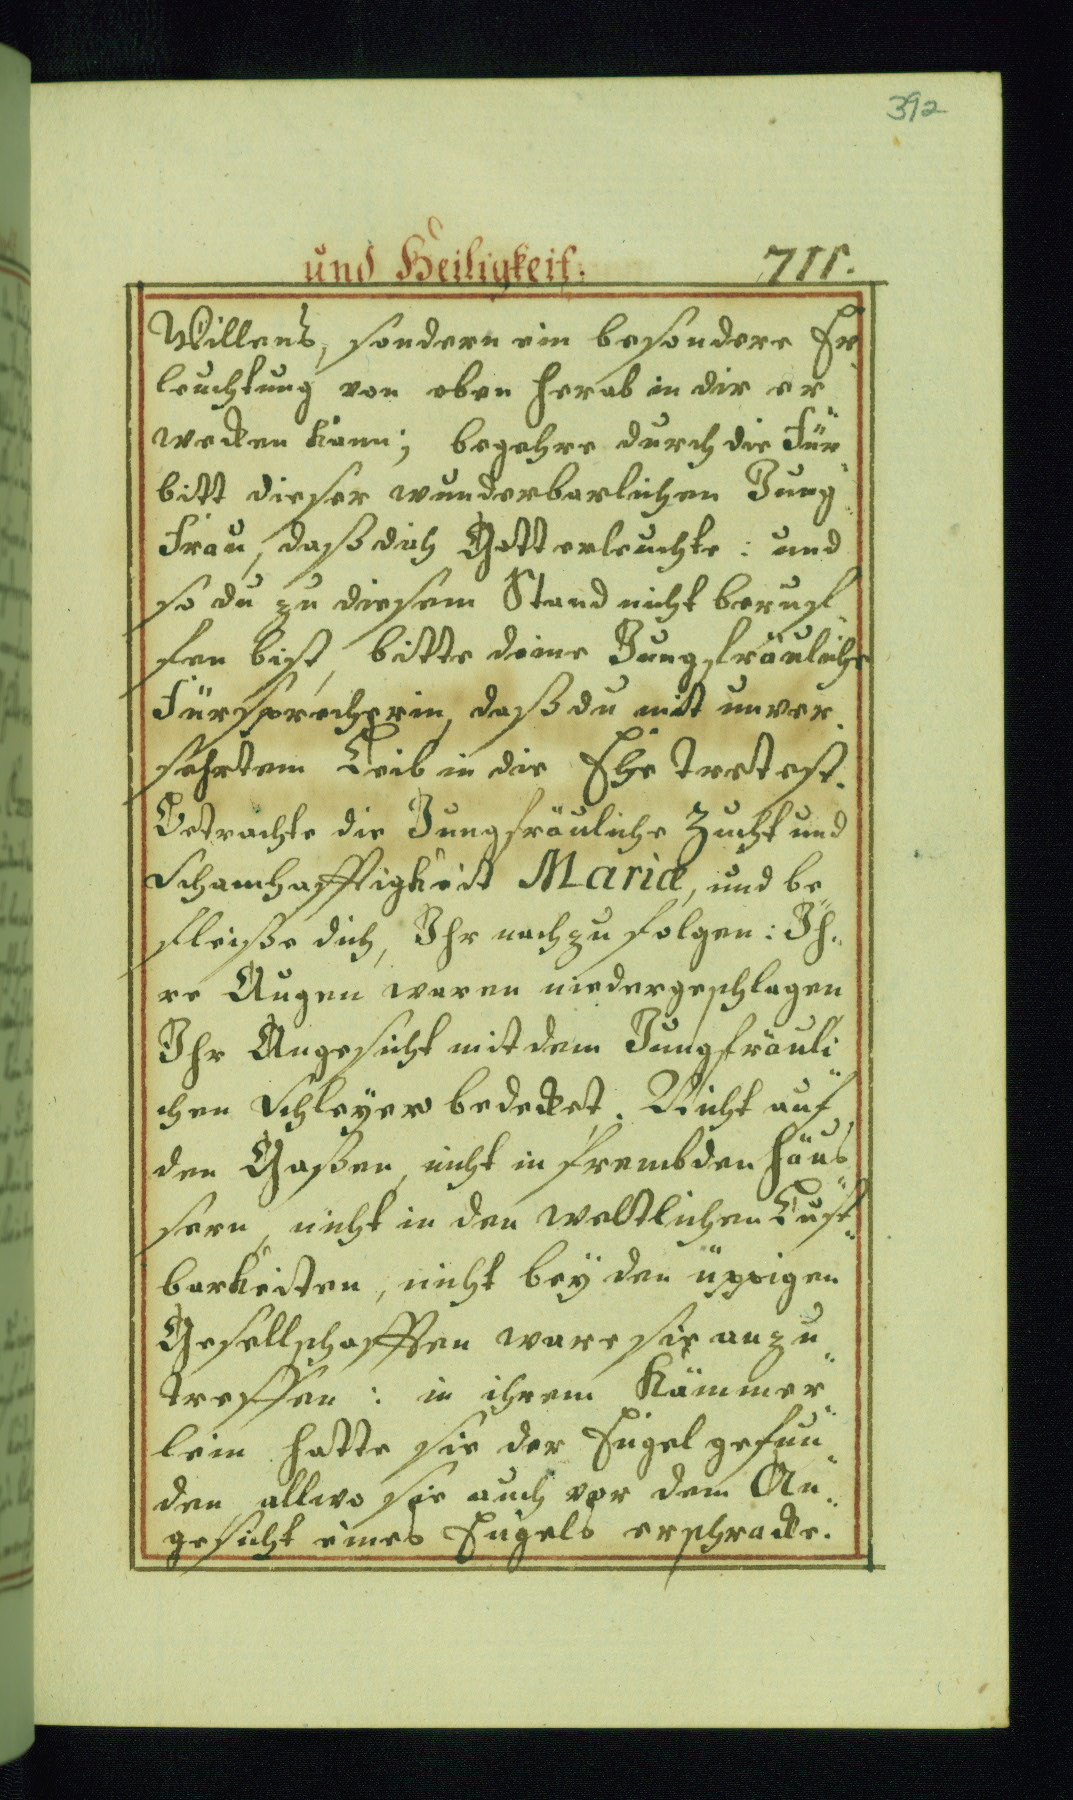 392
und Heiligkeit. 711.
Willens, sondern ein besondere Er
leuchtung von oben herab in dir er
wecken kann; begehre durch die Für
bitt dieser wunderbarlichen Jung
frau, daß dich Gott erleuchte: und
so du zu diesem Stand nicht beruf
fen bist, bitte deine Jungfräuliche
Fürsprecherin, daß du mit unver
sehrtem Leib in die Ehe tretest.
Betrachte die Jungfräuliche Zucht und
Schamhafftigkeit Mariæ, und be
fleisse dich, Ihr nachzufolgen: Ih¬
re Augen waren niedergeschlagen
Ihr Angesicht mit dem Jungfräuli
chen Schleÿer bedecket. Nicht auf
den Gaßen, nicht in frembden Häus
sern, nicht in den weltlichen Lust
barkeiten, nicht beÿ den üppigen
Gesellschafften ware sie anzu
treffen: in ihrem Kämmer
lein hatte sie der Engel gefun
den, allwo sie auch vor dem An¬
gesicht eines Engels erschracke.